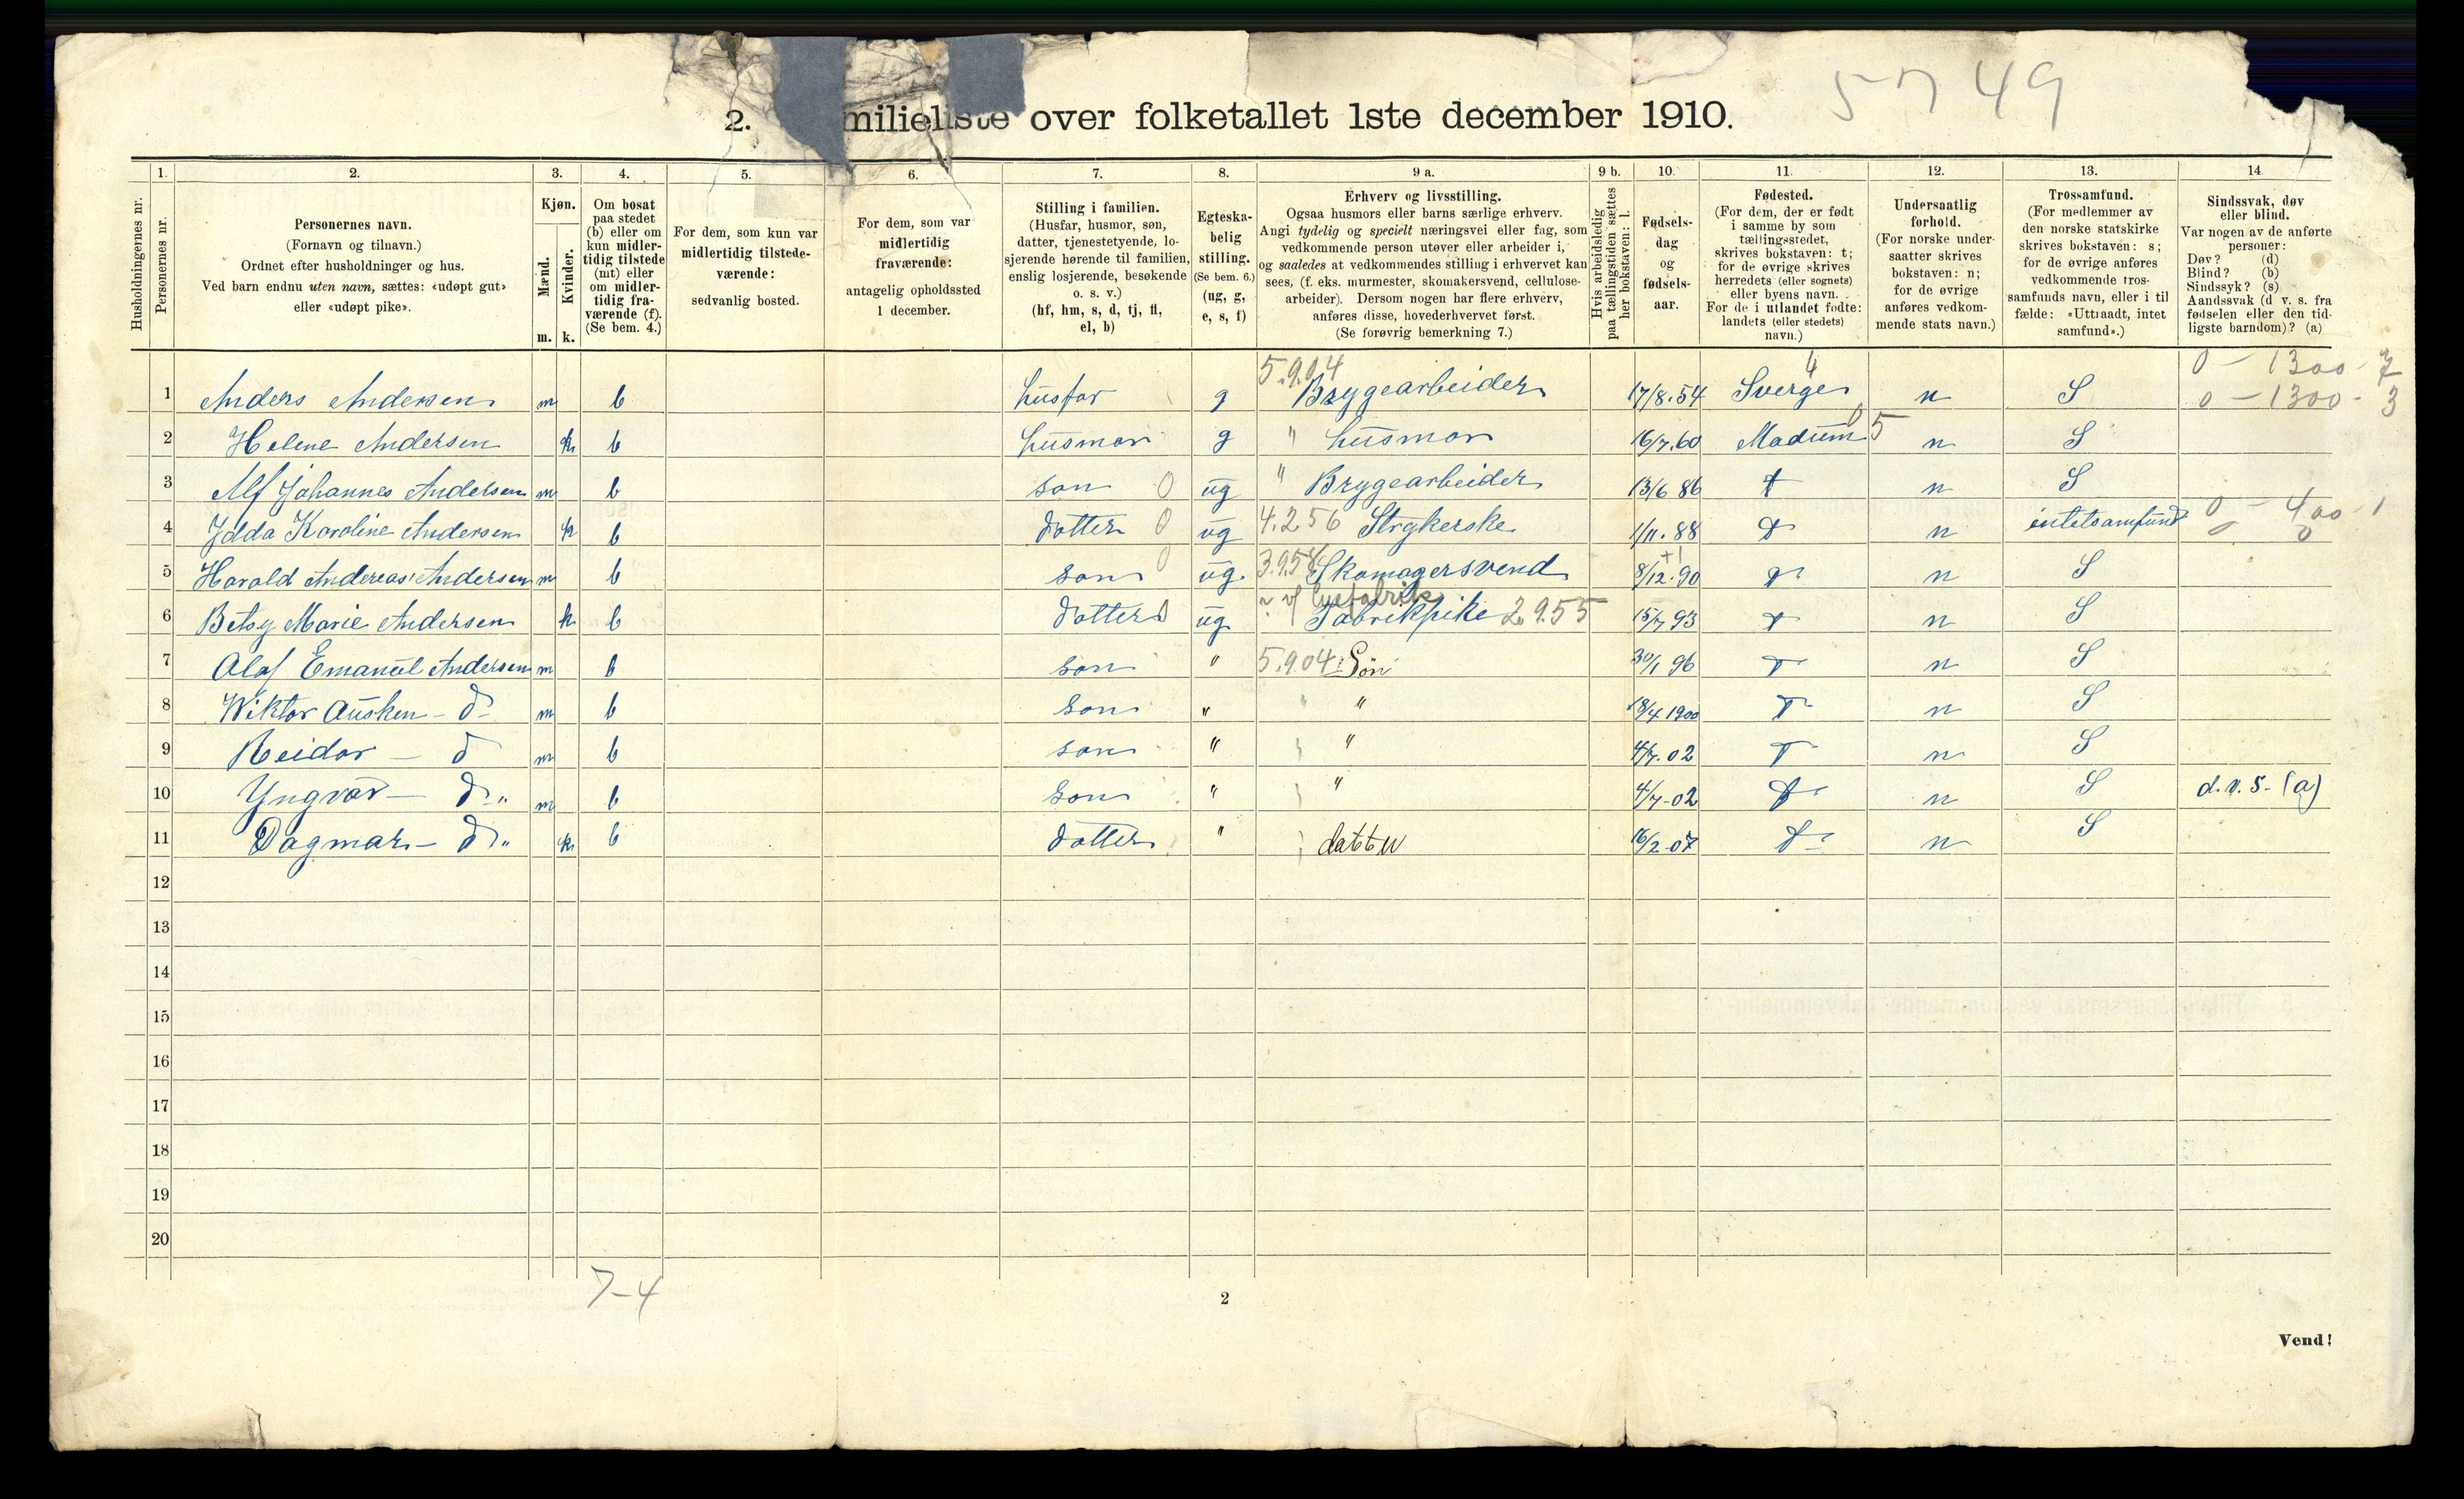 5749
2. milieliste over folketallet 1ste december 1910.
1. 2. 3. 4. 5. 6. 7. 8. 9 a. 9 b. 10. 11. 12. 13. 14.
Husholdningernes nr.
Personernes nr.
Personernes navn.
(Fornavn og tilnavn.)
Ordnet efter husholdninger og hus.
Ved barn endnu uten navn, sættes: «udøpt gut»
eller «udøpt pike».
Kjøn.
Mænd.
Kvinder.
m. k.
Om bosat
paa stedet
(b) eller om
kun midler-
tidig tilstede
(mt) eller
om midler-
tidig fra-
værende (f).
(Se bem. 4.)
For dem, som kun var
midlertidig tilstede-
værende:
sedvanlig bosted.
For dem, som var
midlertidig
fraværende:
antagelig opholdssted
1 december.
Stilling i familien.
(Husfar, husmor, søn,
datter, tjenestetyende, lo-
sjerende hørende til familien,
enslig losjerende, besøkende
o. s. v.)
(hf, hm, s, d, tj, fl,
el, b)
Egteska-
belig
stilling.
(Se bem. 6.)
(ug, g,
e, s, f)
Erhverv og livsstilling.
Ogsaa husmors eller barns særlige erhverv.
Angi tydelig og specielt næringsvei eller fag, som
vedkommende person utøver eller arbeider i,
og saaledes at vedkommendes stilling i erhvervet kan
sees, (f. eks. murmester, skomakersvend, cellulose-
arbeider). Dersom nogen har flere erhverv,
anføres disse, hovederhvervet først.
(Se forøvrig bemerkning 7.)
Hvis arbeidsledig
paa tællingstiden sættes
her bokstaven: l.
Fødsels-
dag
og
fødsels-
aar.
Fødested.
(For dem, der er født
i samme by som
tællingsstedet,
skrives bokstaven: t;
for de øvrige skrives
herredets (eller sognets)
eller byens navn.
For de i utlandet fødte:
landets (eller stedets)
navn.)
Undersaatlig
forhold.
(For norske under-
saatter skrives
bokstaven: n;
for de øvrige
anføres vedkom-
mende stats navn.)
Trossamfund.
(For medlemmer av
den norske statskirke
skrives bokstaven: s;
for de øvrige anføres
vedkommende tros-
samfunds navn, eller i til
fælde: «Uttraadt, intet
samfund».)
Sindssvak, døv
eller blind.
Var nogen av de anførte
personer:
Døv? (d)
Blind? (b)
Sindssyk? (s)
Aandssvak (d v. s. fra
fødselen eller den tid-
ligste barndom)? (a)
5.9.04 4 0 - 1300 - 7
1 Anders Andersen m b husfar g Brygearbeider 17/8.54 Sverge n S 0 - 1300 - 3
2 Helene Andersen k b husmor g " husmor 16/7.60 Modum 0 5 n S
3 Alf Johannes Andersen m b son 0 ug " Brygearbeider 13/6 86 t n S
4 Ydda Karoline Andersen k b dotter 0 ug 4.256 Strykerske 1/11.88 t n intetsamfund 0 - 400 - 1
0 0
5 Harald Andreas Andersen m b son 0 ug. 3.958 Skomagersvend 8/12.90 +1 t n S
6 Betsy Marie Andersen k b dotter 0 ug Fabrikpike 2.955 15/7 93 t n S
7 Olaf Emanuel Andersen m b son " 5.9.04 Søn 30/1 96 T n S
8 Wiktor Ausken - d- m b son " " " 18/4 1900 T n S
9 Reidar - d m b son " " 4/7.02 T n S
10 Yngvar - d " m b son " " 4/7-02 t n S d.v.s. (a)
11 Dagmar - d " k b dotter " datter 16/2-07 t n S
12
13
14
15
16
17
18
19
20
7-4
2
Vend!